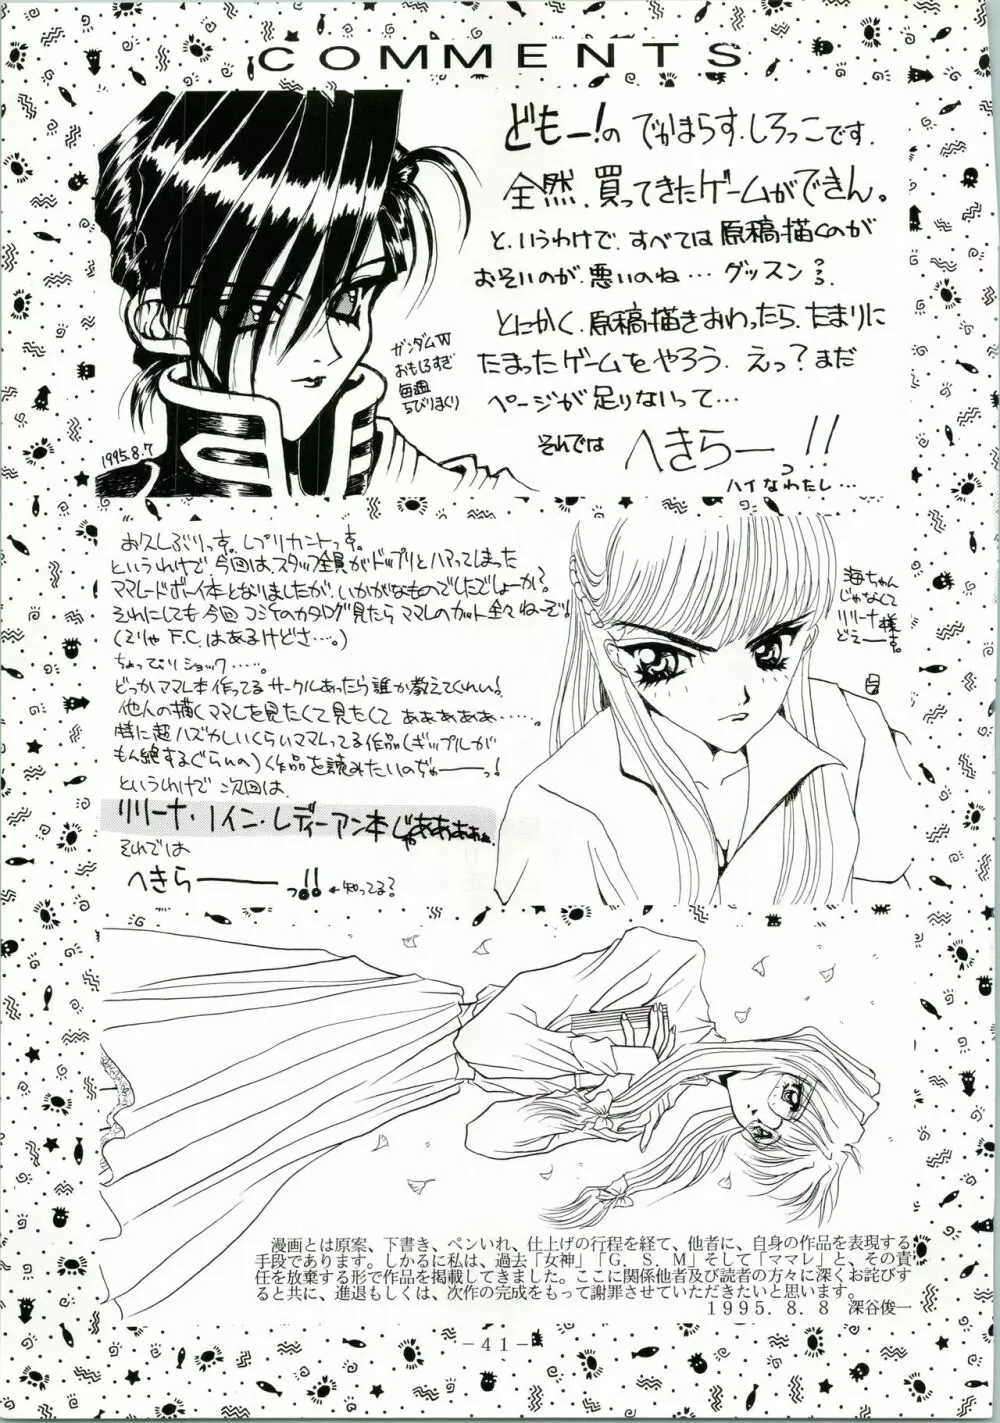 COMMENTS
どもー!の でかまらす.しろっこです.
全然.買ってきたゲームができん。
と、いうわけで.すべては原稿描くのが
おそいのが.悪いのね…グッスン
とにかく.原稿描きおわったら.たまりに
たまったゲームをやろう.えっ?まだ
ページが足りないって…
それでは へきらーっ!!
ハイなわたし…
ガンダムW
おもしろすぎ
毎週
ちびりまくり
1995.8.7
お久しぶりっす。レプリカントっす。
というわけで、今回は、スタッフ全員がドップリとハマってしまった
ママレードボーイ本となりましたが、いかがなものでしたでしょーか?
それにしても今回コミケのカタログ見たらママレのカット全々ねーぞ!
(そりゃF.C.はあるけどさ…。)
ちょっぴりショック……。
どっかママレ本作ってるサークルあったら誰か教えてくれい!
他人の描くママレを見たくて見たくて あぁぁぁぁぁ……。
特に超ハズかしいくらいママレってる作品(ギップルが
もん絶するぐらいの)作品を読みたいのぢゃーーっ!
というわけで次回は、
リリーナ・ノイン・レディーアン本じゃああぁぁぁ
それでは
へきらーーーっ!! ←知ってる?
海ちゃん
じゃなくて
リリーナ様
どえーーす。
漫画とは原案、下書き、ペンいれ、仕上げの行程を経て、他者に、自身の作品を表現する
手段であります。しかるに私は、過去「女神」「G．S．M」そして「ママレ」と、その責
任を放棄する形で作品を掲載してきました。ここに関係他者及び読者の方々に深くお詫びす
ると共に、進退もしくは、次作の完成をもって謝罪させていただきたいと思います。
1995．8．8　深谷俊一
－41－